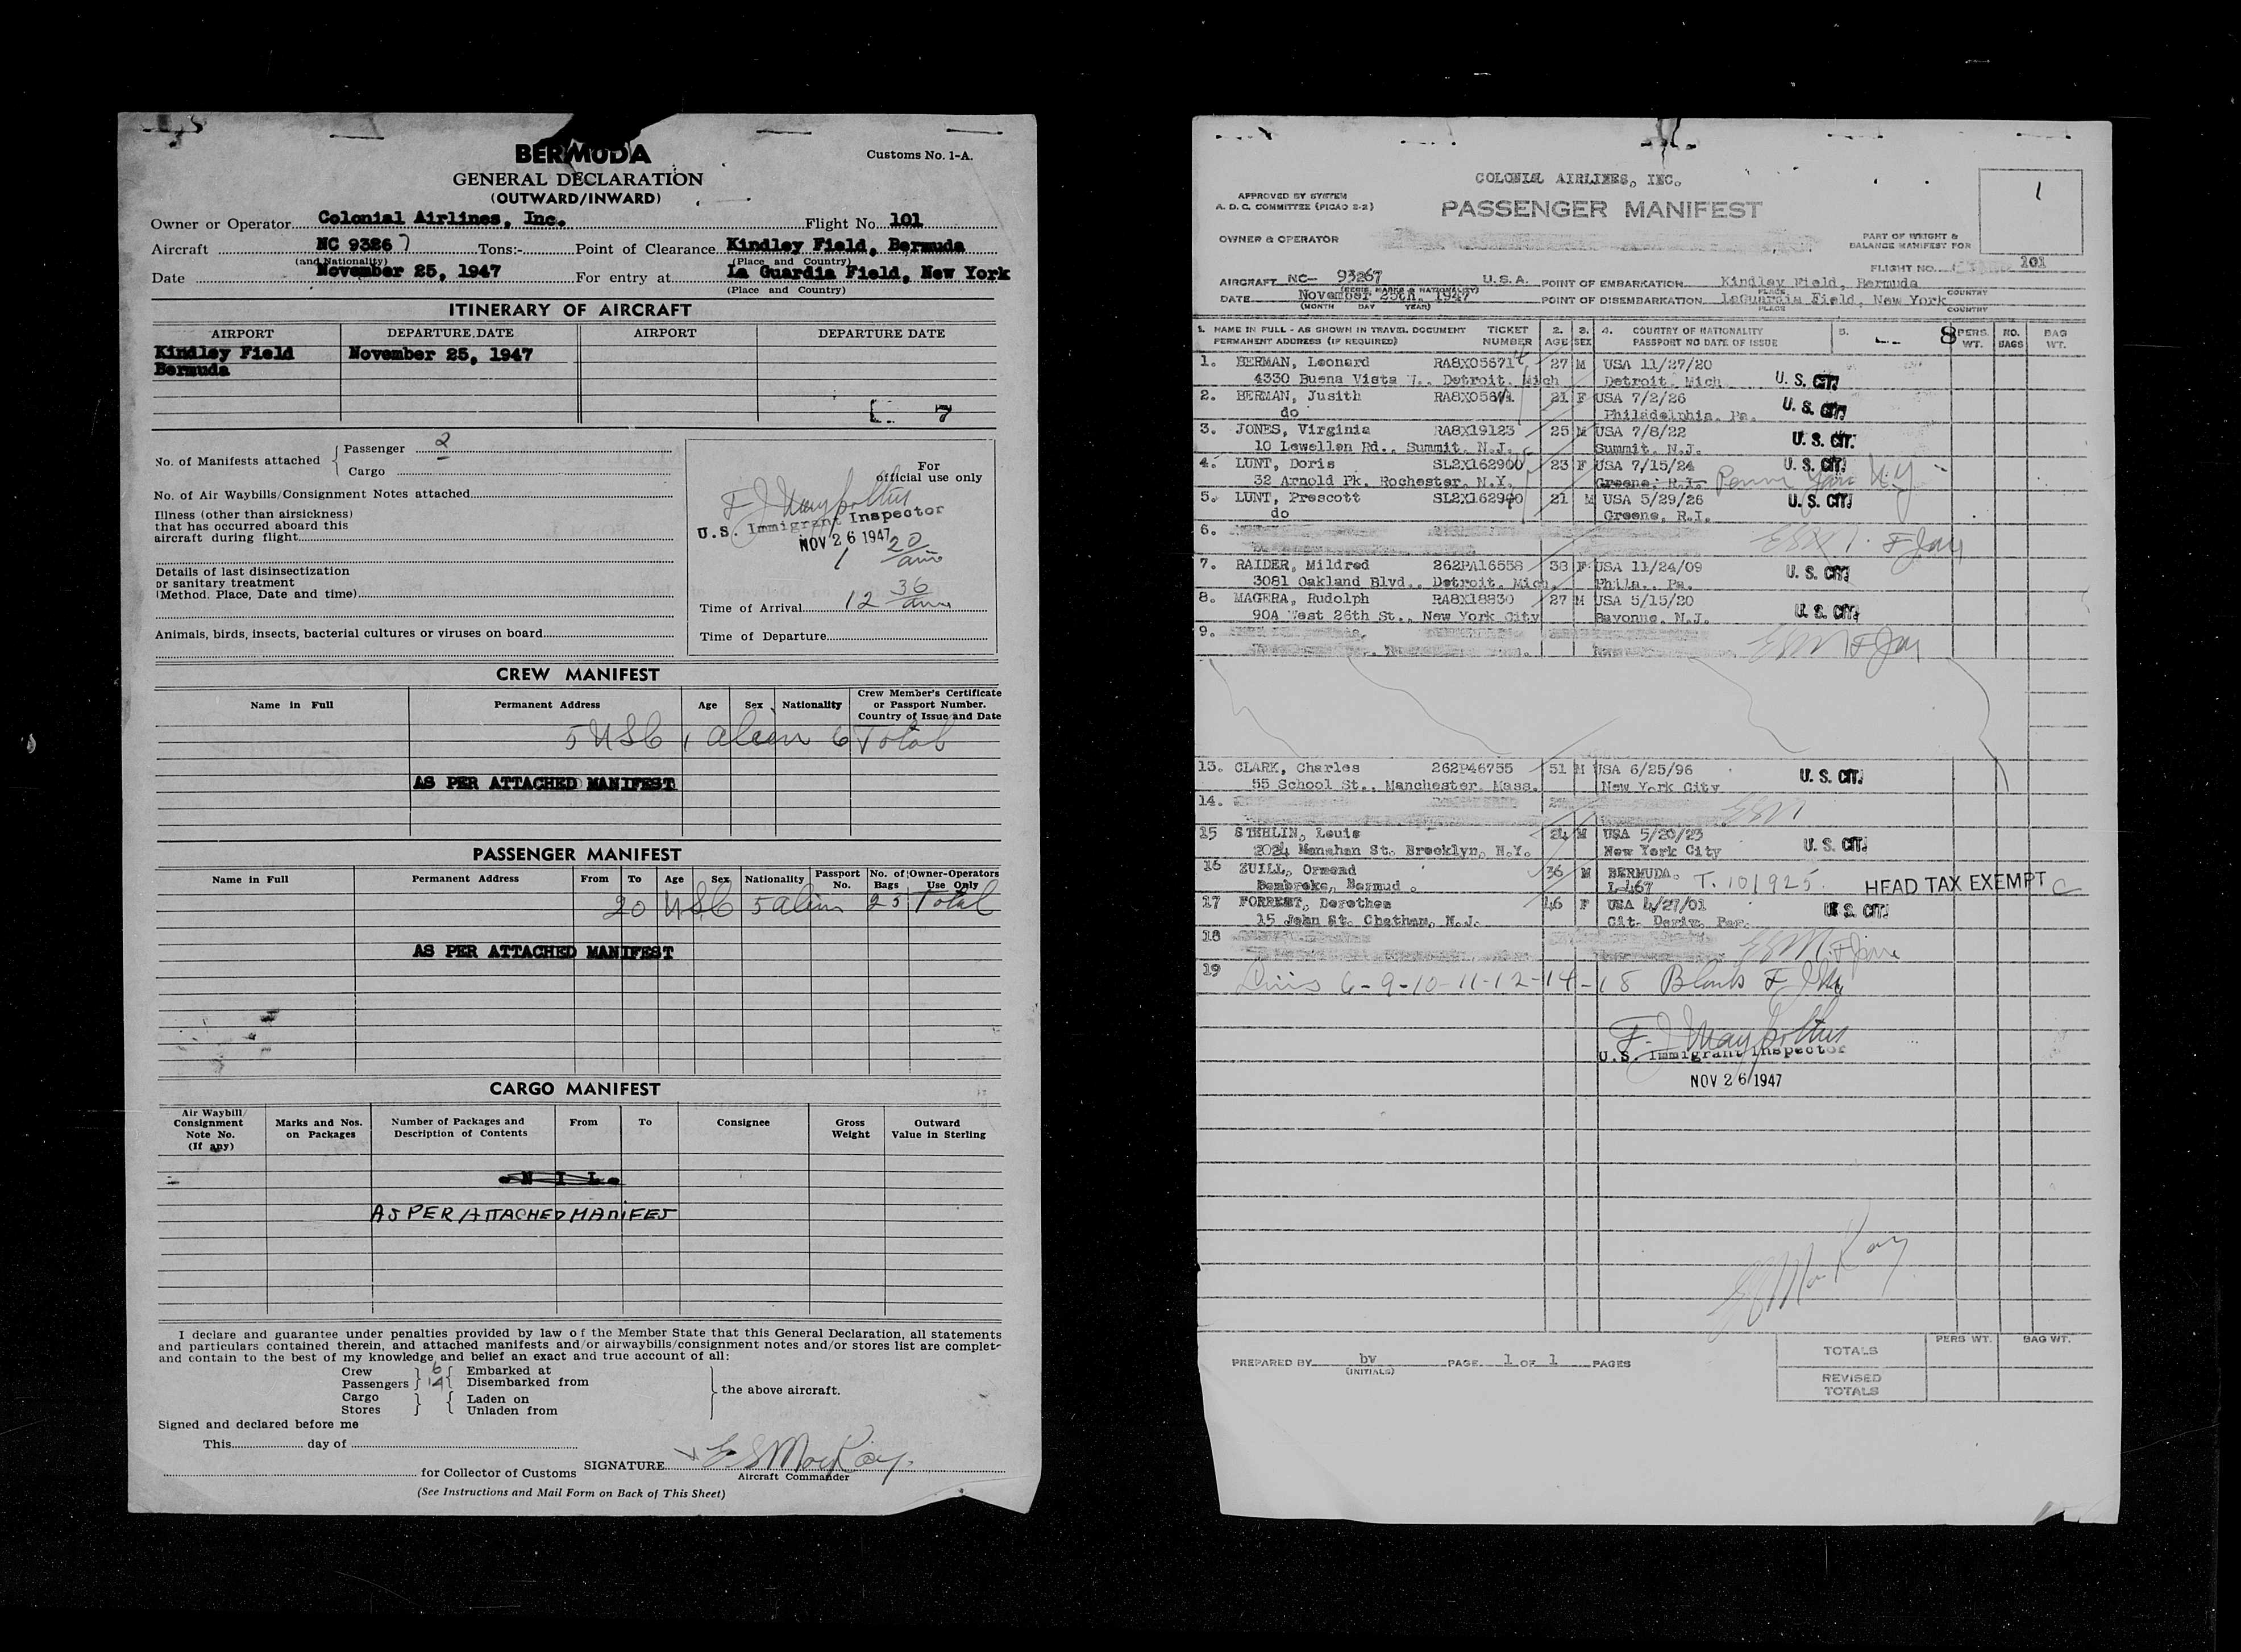 BERMUDA
Customs No. 1-A.
GENERAL DECLARATION
(OUTWARD/INWARD)
Owner or Operator Colonial Airlines, Inc. Flight No. 101
Aircraft NC 93267 Tons:- Point of Clearance Kindley Field, Bermuda
(and Nationality) (Place and Country)
Date November 25, 1947 For entry at La Guardia Field, New York
(Place and Country)
ITINERARY OF AIRCRAFT
AIRPORT DEPARTURE DATE AIRPORT DEPARTURE DATE
Kindley Field November 25, 1947
Bermuda
7
No. of Manifests attached Passenger 2
Cargo
No. of Air Waybills/Consignment Notes attached
Illness (other than airsickness)
that has occurred aboard this
aircraft during flight
Details of last disinsectization
or sanitary treatment
(Method, Place, Date and time)
Animals, birds, insects, bacterial cultures or viruses on board
For
official use only
U.S. Immigrant Inspector
NOV 26 1947
1 20 am
Time of Arrival 12 36 am
Time of Departure
CREW MANIFEST
Name in Full Permanent Address Age Sex Nationality Crew Member's Certificate
or Passport Number.
Country of Issue and Date
5 USC 1 alien 6 Total
AS PER ATTACHED MANIFEST
PASSENGER MANIFEST
Name in Full Permanent Address From To Age Sex Nationality Passport No. No. of Bags Owner-Operators Use Only
20 USC 5 alien 25 Total
AS PER ATTACHED MANIFEST
CARGO MANIFEST
Air Waybill/ Consignment Note No. (If any) Marks and Nos. on Packages Number of Packages and Description of Contents From To Consignee Gross Weight Outward Value in Sterling
N I L
AS PER ATTACHED MANIFES
I declare and guarantee under penalties provided by law of the Member State that this General Declaration, all statements
and particulars contained therein, and attached manifests and/or airwaybills/consignment notes and/or stores list are complet
and contain to the best of my knowledge and belief an exact and true account of all:
Crew 6 Embarked at
Passengers 14 Disembarked from
Cargo Laden on
Stores Unladen from
the above aircraft.
Signed and declared before me
This day of
for Collector of Customs SIGNATURE E S MacKay
Aircraft Commander
(See Instructions and Mail Form on Back of This Sheet)
COLONIAL AIRLINES, INC.
1
APPROVED BY SYSTEM
A. D. C. COMMITTEE (PICAO 2-2)
PASSENGER MANIFEST
OWNER & OPERATOR
PART OF WEIGHT &
BALANCE MANIFEST FOR
FLIGHT NO. 101
AIRCRAFT NC- 93267 U.S.A. POINT OF EMBARKATION Kindley Field, Bermuda
(REGIS. MARKS & NATIONALITY) PLACE COUNTRY
DATE November 25th, 1947 POINT OF DISEMBARKATION LaGuardia Field, New York
(MONTH DAY YEAR) PLACE COUNTRY
1. NAME IN FULL - AS SHOWN IN TRAVEL DOCUMENT TICKET 2. 3. 4. COUNTRY OF NATIONALITY 5. 8 PERS. NO. BAG
PERMANENT ADDRESS (IF REQUIRED) NUMBER AGE SEX PASSPORT NO DATE OF ISSUE WT. BAGS WT.
1. BERMAN, Leonard 27 M USA 11/27/20
4330 Buena Vista W., Detroit, Mich Detroit, Mich U. S. CIT.
2. BERMAN, Jusith 21 F USA 7/2/26
do Philadelphia, Pa. U. S. CIT.
3. JONES, Virginia RA8X19123 25 M USA 7/8/22
10 Lewellen Rd., Summit, N.J. Summit, N.J. U. S. CIT.
4. LUNT, Doris SL2X162900 23 F USA 7/15/24 U. S. CIT.
32 Arnold Pk. Rochester, N.Y. Greene, R.I. Penn Yan N.Y
5. LUNT, Prescott 21 M USA 5/29/26 U. S. CIT.
do Greene, R.I.
6.
7. RAIDER, Mildred 262PA16558 38 F USA 11/24/09 U. S. CIT.
3081 Oakland Blvd., Detroit, Mich. Phila., Pa.
8. MAGERA, Rudolph RA8X18830 27 M USA 5/15/20 U. S. CIT.
90A West 26th St., New York City Bayonne, N.J.
9.
13. CLARK, Charles 262P46755 51 M USA 6/25/96 U. S. CIT.
55 School St., Manchester, Mass. New York City
14.
15 STEHLIN, Louis 24 M USA 5/20/23 U. S. CIT.
2024 Menahan St. Brooklyn, N.Y. New York City
16 ZUILL, Ormond 36 M BERMUDA. T. 101925 HEAD TAX EXEMPT C
Pembroke, Bermud . L-467
17 FORREST, Dorothea 46 F USA 4/27/01 U. S. CIT.
15 Jean St. Chatham, N.J. Cit. Deriv. Par.
18
19 Lines 6-9-10-11-12-14-18 Blank
U.S. Immigrant Inspector
NOV 26 1947
E S MacKay
TOTALS PERS WT. BAG WT.
REVISED
TOTALS
PREPARED BY bv PAGE 1 OF 1 PAGES
(INITIALS)